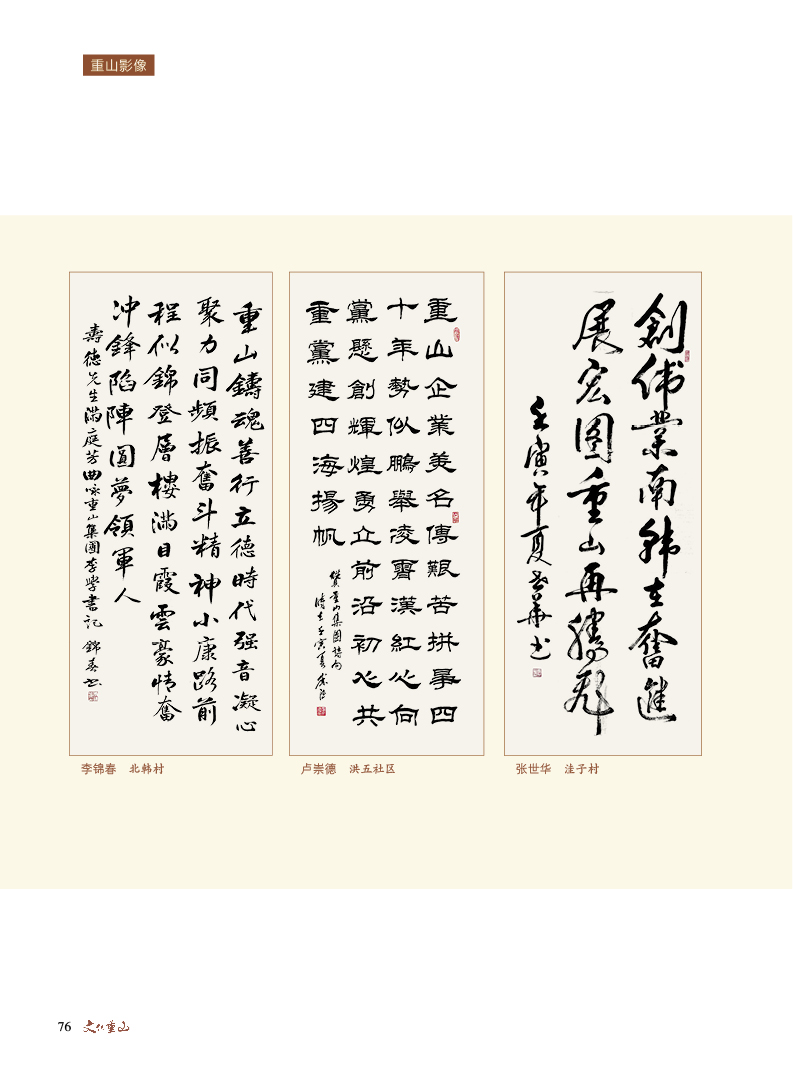 重山影像
重山鑄魂善行立德時代强音凝心
聚力同頻振奮斗精神小康路前
程似錦登層樓滿目霞雲豪情奮
冲鋒陷陣圓夢領軍人
壽德先生滿庭芳曲咏重山集團李學書記 錦春书
重山企業美名傳艱苦拼搏四
十年勢似鵬舉凌霄漢紅心向
黨懸創輝煌勇立前沿初心共
重黨建四海揚帆
創伟業南韩在奮進
展宏图重山再騰飛
壬寅年夏世華书
李锦春 北韩村
卢崇德 洪五社区
张世华 洼子村
76 文化重山